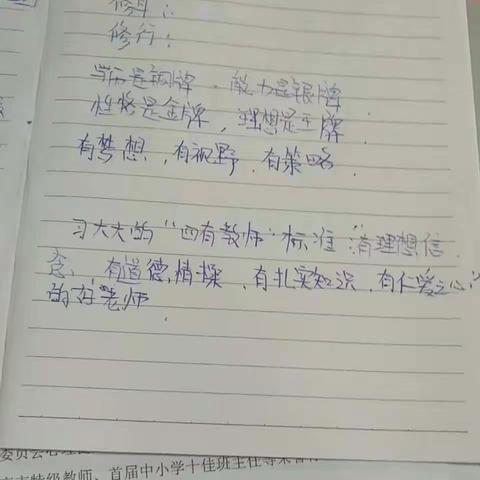 修身:
修行:
学历是铜牌，能力是银牌
性格是金牌，理想是王牌.
有梦想，有视野，有策略.
习大大的“四有教师”标准“有理想信
念，有道德情操，有扎实知识，有仁爱之心”
的好老师.
委员会心理
市特级教师、首届中小学十佳班主任等荣